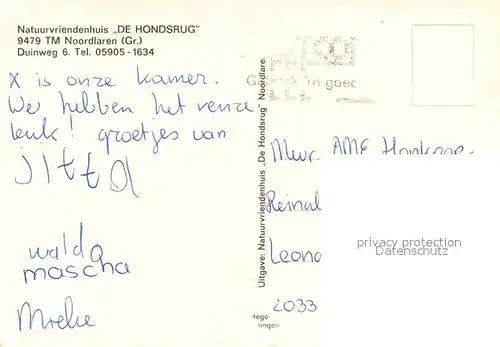 Natuurvriendenhuis „DE HONDSRUG"
9479 TM Noordlaren (Gr.)
Duinweg 6. Tel. 05905-1634
X is onze kamer.
We hebben het reuze
leuk! groetjes van
jitta
waldo
mascha
Mieke
Uitgave: Natuurvriendenhuis „De Hondsrug" Noordlare
Mevr. AME
Reinal
Leona
2033
privacy protection
Datenschutz